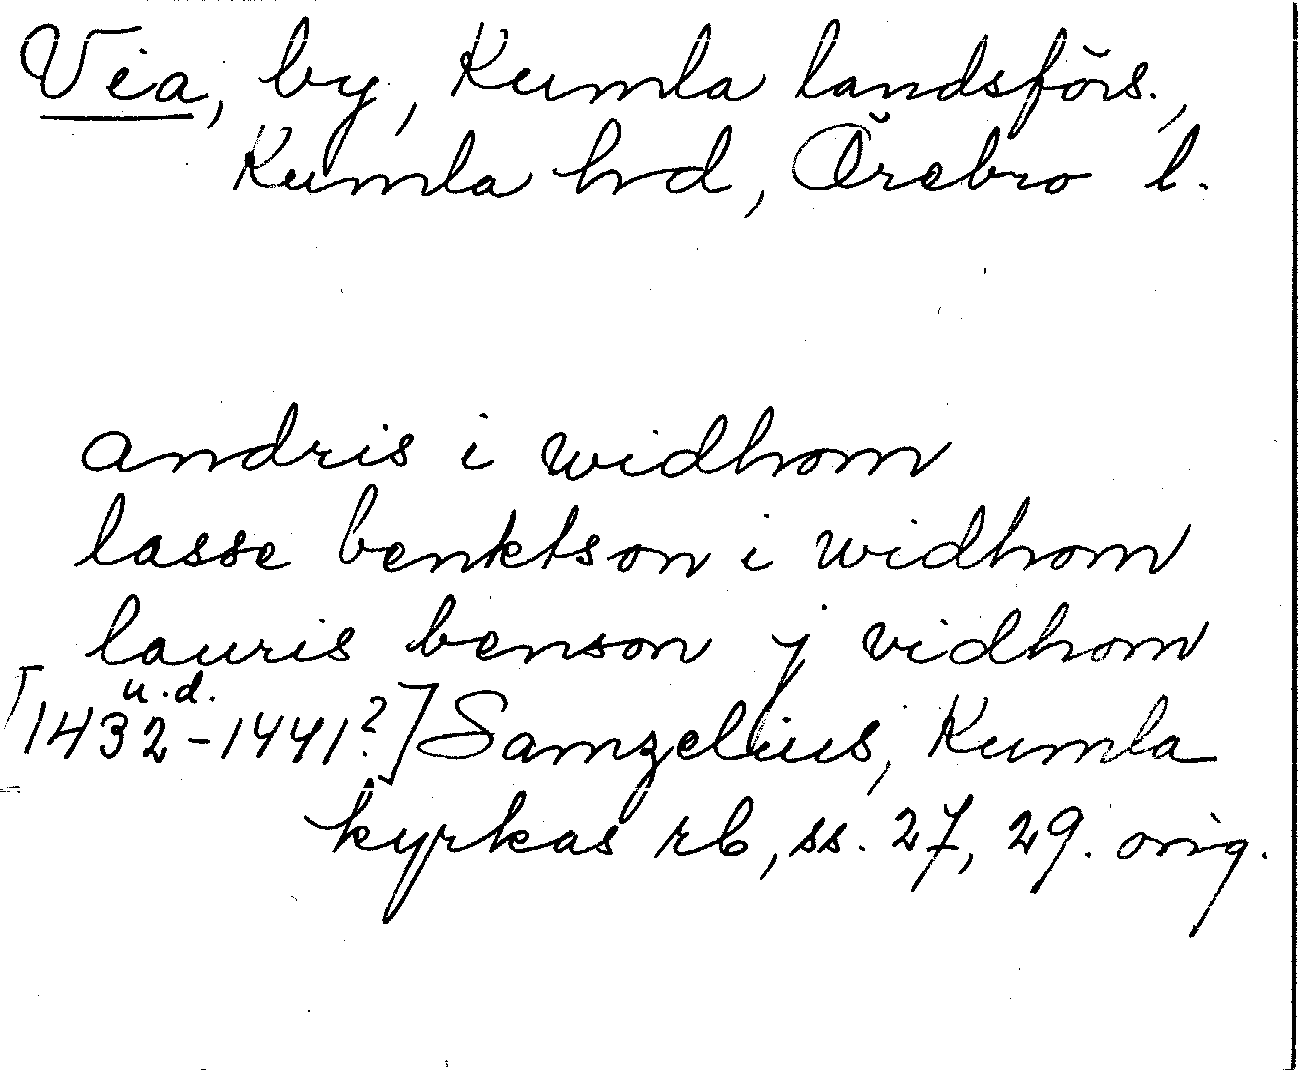 Via, by, Kumla landsförs.,
Kumla hd, Örebro l.
andris i widhom
lasse benktson i widhom
lauris benson j vidhom
u.d.
[1432-1441?] Samzelius, Kumla
kyrkas rb, ss. 27, 29. orig.